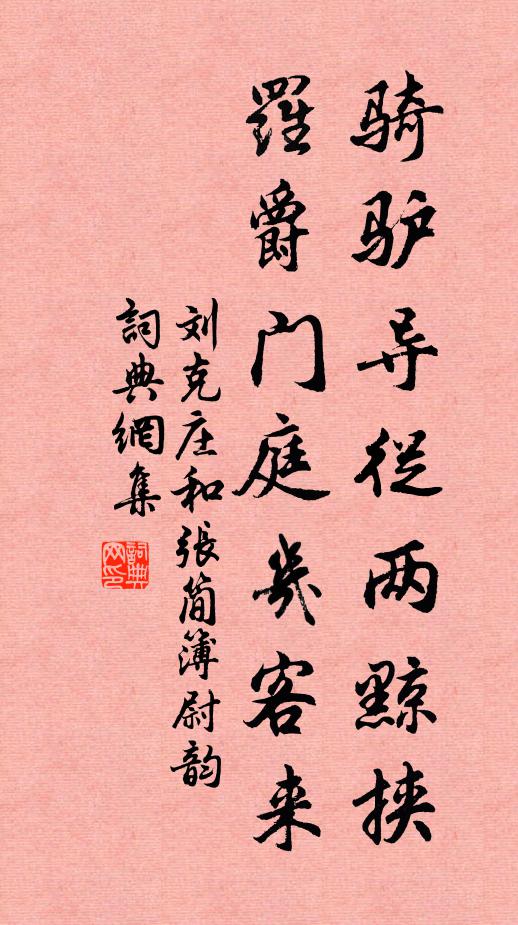 骑驴导从两黥挟
羅爵门庭幾客来
刘克庄和張简薄尉韵
詞典網集
詞典网印